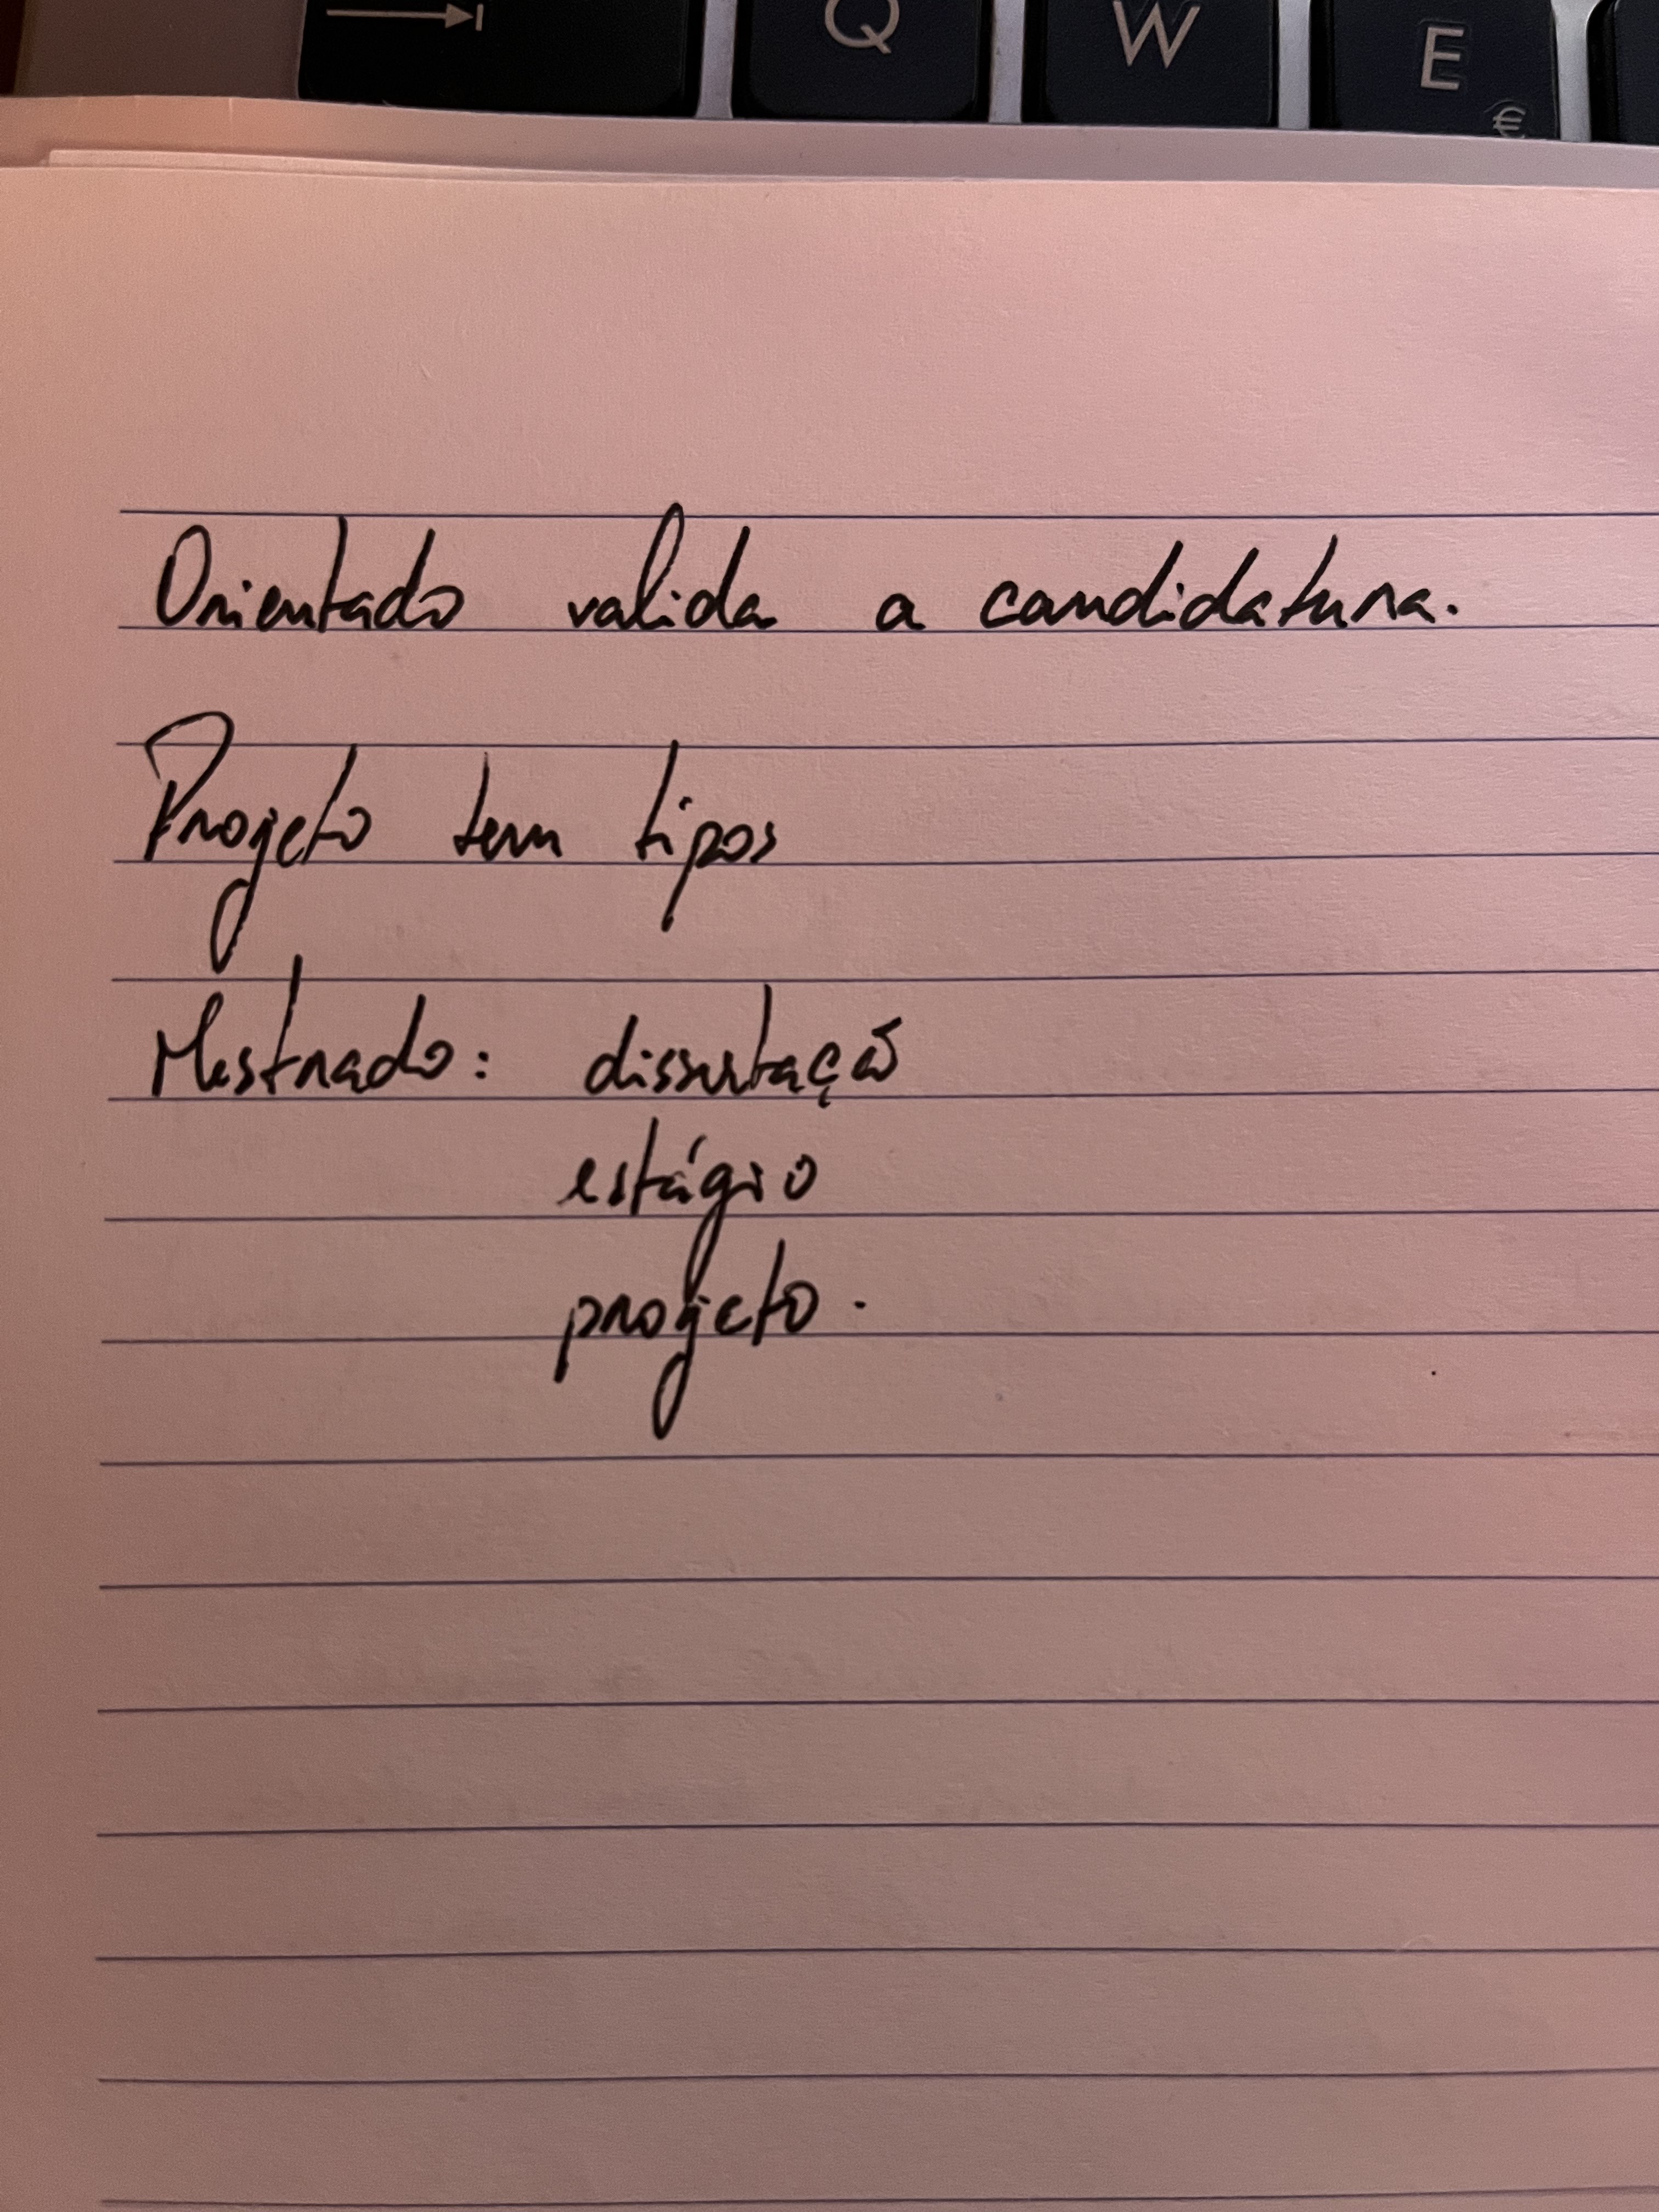 Q W E
€
Orientado valida a candidatura.
Projeto tem tipos
Mestrado: dissertação
estágio
projeto.